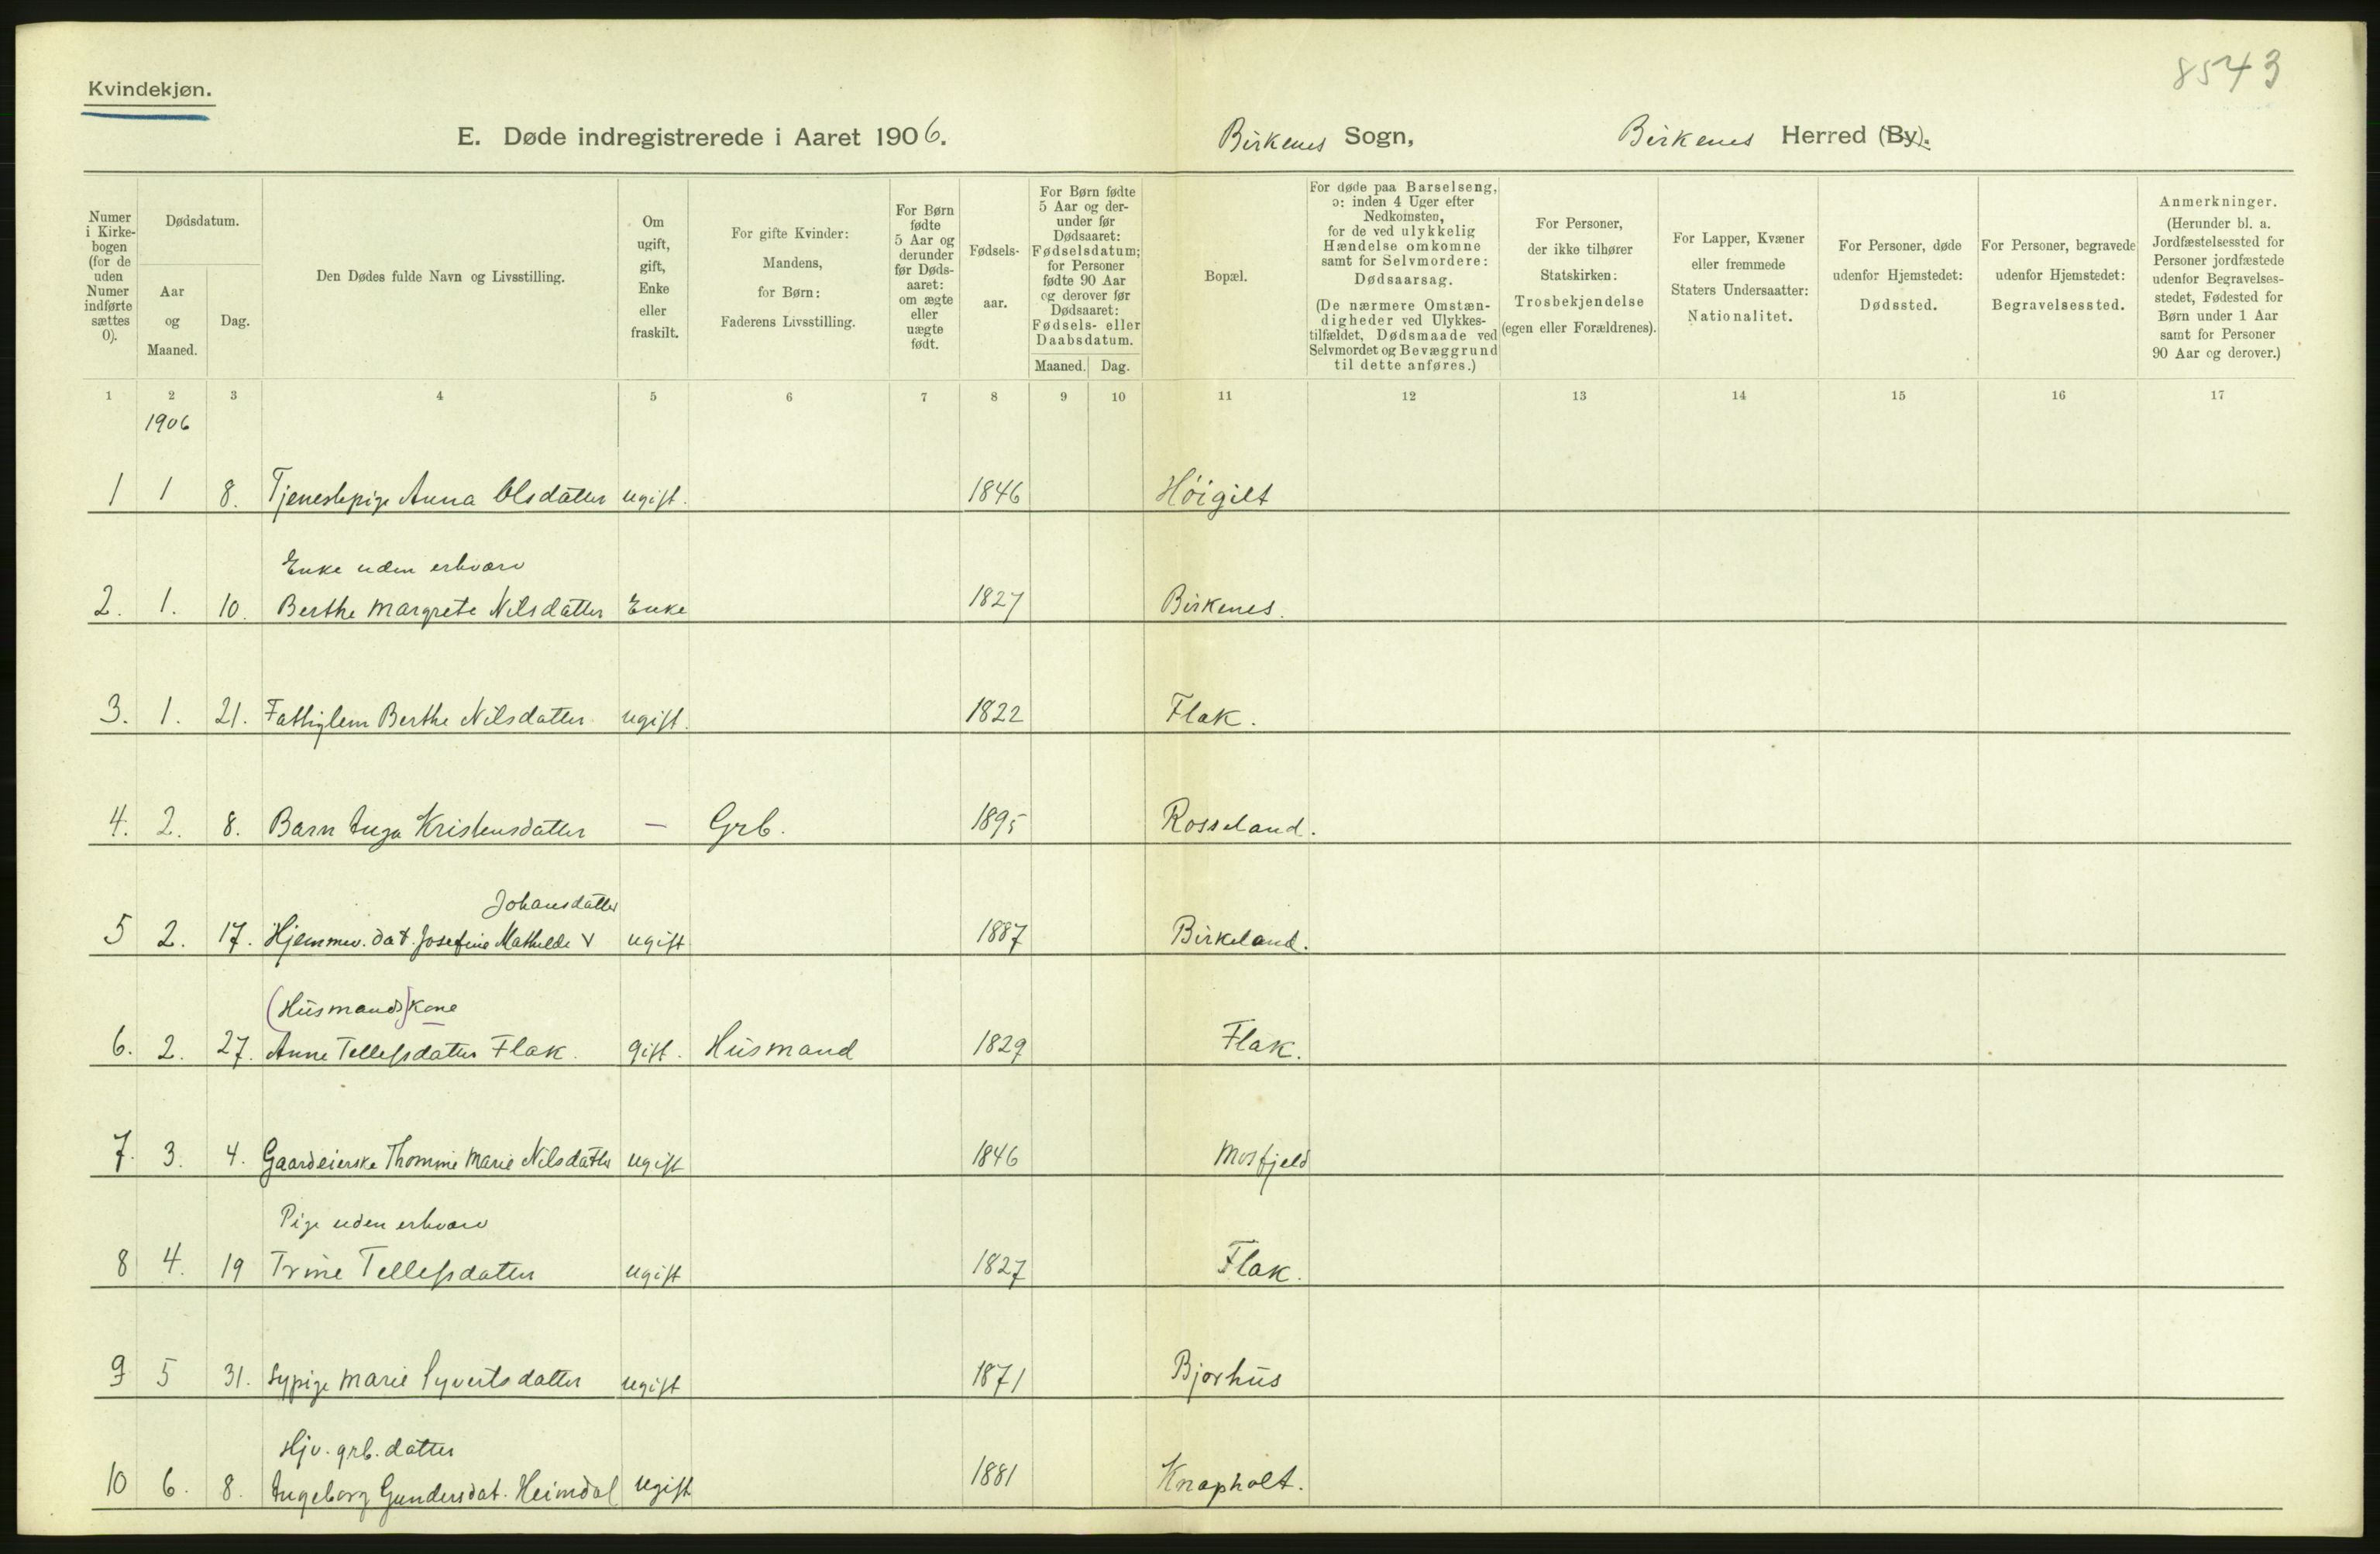 8543
Kvindekjøn.
E. Døde indregistrerede i Aaret 1906. Birkenes Sogn, Birkenes Herred (By).
Numer i Kirke-bogen (for de uden Numer indførte sættes 0).
Dødsdatum.
Aar og Maaned.
Dag.
Den Dødes fulde Navn og Livsstilling.
Om ugift, gift, Enke eller fraskilt.
For gifte Kvinder: Mandens, for Børn: Faderens Livsstilling.
For Børn fødte 5 Aar og derunder før Døds-aaret: om ægte eller uægte født.
Fødsels-aar.
For Børn fødte 5 Aar og der-under før Dødsaaret: Fødselsdatum; for Personer fødte 90 Aar og derover før Dødsaaret: Fødsels- eller Daabsdatum.
Maaned. Dag.
Bopæl.
For døde paa Barselseng, ɔ: inden 4 Uger efter Nedkomsten, for de ved ulykkelig Hændelse omkomne samt for Selvmordere: Dødsaarsag. (De nærmere Omstæn-digheder ved Ulykkes-tilfældet, Dødsmaade ved Selvmordet og Bevæggrund til dette anføres.)
For Personer, der ikke tilhører Statskirken: Trosbekjendelse (egen eller Forældrenes).
For Lapper, Kvæner eller fremmede Staters Undersaatter: Nationalitet.
For Personer, døde udenfor Hjemstedet: Dødssted.
For Personer, begravede udenfor Hjemstedet: Begravelsessted.
Anmerkninger. (Herunder bl. a. Jordfæstelsessted for Personer jordfæstede udenfor Begravelses-stedet, Fødested for Børn under 1 Aar samt for Personer 90 Aar og derover.)
1 2 3 4 5 6 7 8 9 10 11 12 13 14 15 16 17
1906
1 1 8. Tjenestepige Anna Olsdatter ugift. 1846 Höigilt
Enke uden erhværv
2. 1. 10. Berthe Margrete Nilsdatter Enke 1827 Birkenes.
3. 1. 21. Fattiglem Berthe Nilsdatter ugift. 1822 Flak.
4. 2. 8. Barn Inga Kristensdatter — Grb. 1895 Rosseland.
Johansdatter
5 2. 17. Hjemmev. dat. Josefine Mathilde v ugift 1887 Birkeland.
(Husmands)kone
6. 2. 27. Anne Tellefsdatter Flak. gift. Husmand 1829 Flak.
7. 3. 4. Gaardeierske Thomine Marie Nilsdatter ugift 1846 Mosfjeld
Pige uden erhværv
8 4. 19 Trine Tellefsdatter ugift 1827 Flak.
9 5 31. Sypige Marie Syvertsdatter ugift 1871 Bjorhus
Hjv. grb. datter
10 6. 8. Ingeborg Gundersdat. Heimdal ugift 1881 Knapholt.